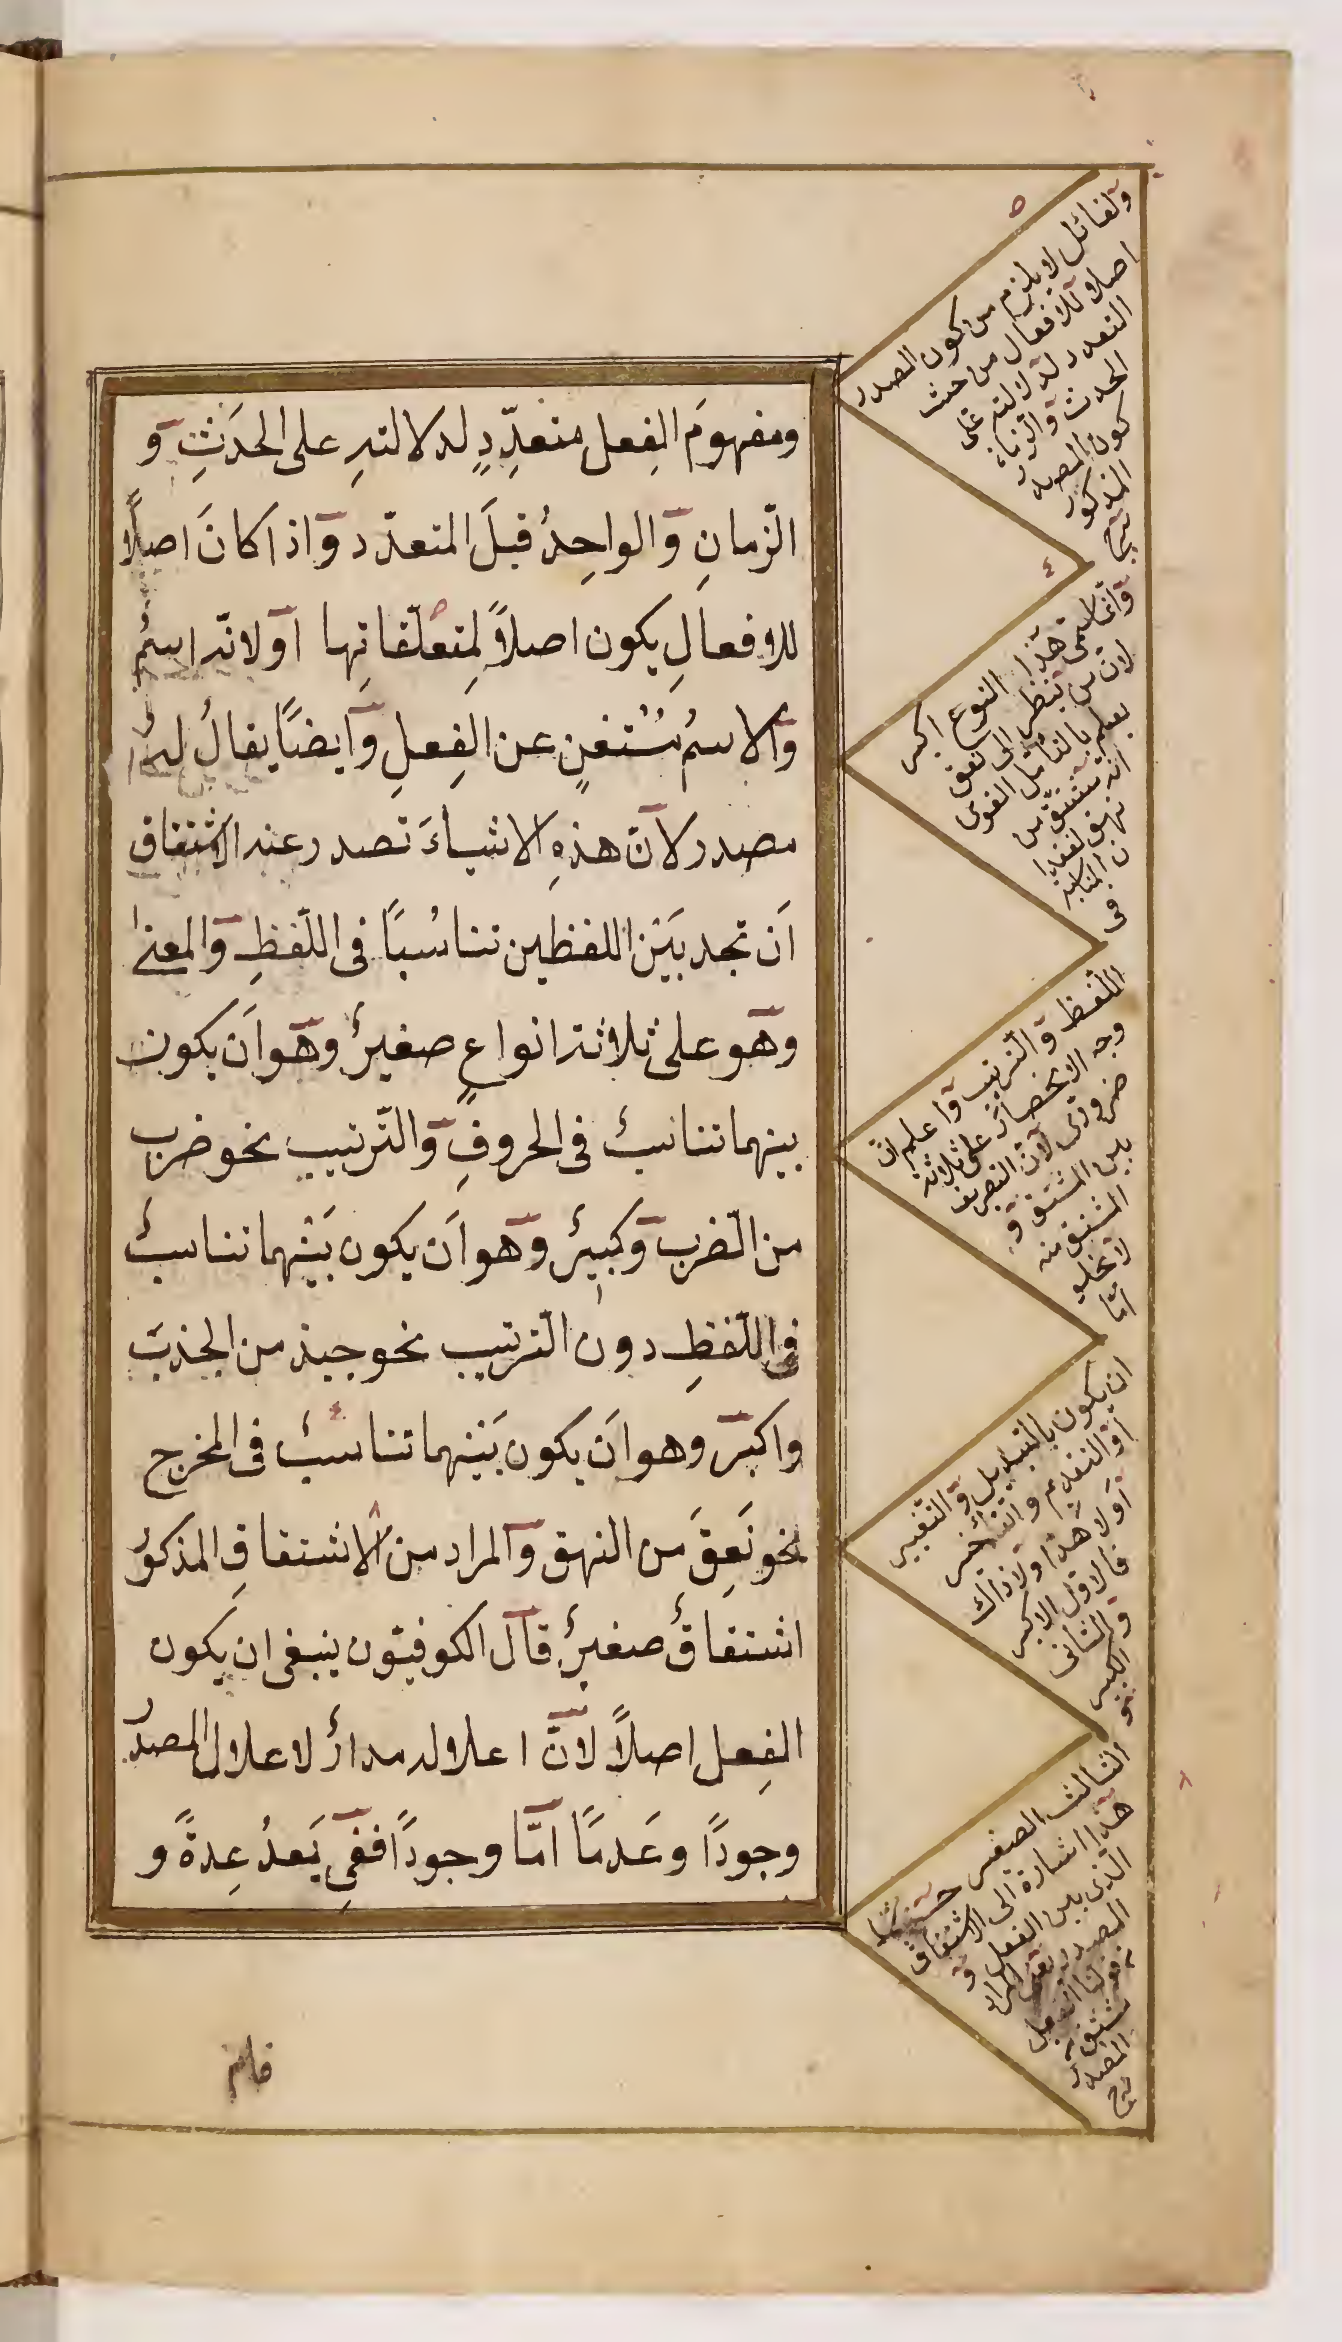 ومفهومَ الفِعل متعدِّدٍ لدلالتهِ على الحدَثِ و
الزّمانِ والواحِدُ قبلَ المتعدّد واذا كانَ اصلًا
للافعالِ يكون اصلاً لِمتعلّقاتِها اولانّه اسمٌ
والاسمُ مُسْتغنٍ عن الفِعلِ وايضًا يقالُ له
مصدر لانّ هذهِ الاشياءَ تصدر عنه الاشتقاق
اَن تجد بَيْن اللفظين تناسُبًا فى اللّفظِ والمعنى
وهو على ثلاثة انواعٍ صغيرٌ وهو اَن يكون
بينهما تناسبٌ فى الحروفِ والتّرتيب نحو ضرب
من الضّرب وكبيرٌ وهو اَن يكون بَيْنهما تناسبٌ
فى اللّفظِ دون التّرتيب نحو جبذ من الجذب
واكبر وهو اَن يكون بَيْنهما تناسبٌ فى المخرج
نحو نَعِقَ من النهق والمراد من الاشتقاقِ المذكور
اشتقاقٌ صغيرٌ قال الكوفيّون ينبغى ان يكون
الفِعل اصلاً لانّ اعلاله مدارٌ لاعلال المصدر
وجودًا وعَدمًا امّا وجودًا ففى يَعدُ عِدةً و
ولقائل لا يلزم من كون المصدر
اصلا للافعال من حيث
التعدد لدلالته على
الحدث والزمان
كون المصدر
المذكور
شرح
وانما سمى هذا النوع اكبر
لان من ينظر الى نعق
يعلم بالتأمل القوى
انه مشتق من
نهق لفقدان
المناسبة
فى
اللفظ والترتيب واعلم ان
وجه الانحصار على ثلاثة
ضرورى لان التصريف
بين المشتق و
المشتق منه
لا يخلو
اما
ان يكون بالتبديل والتغيير
او التقديم والتأخير
او لا هذا ولا ذاك
فالاول الاكبر
والثانى
الكبير
و
الثالث الصغير
هذا اشارة الى الاشتقاق
الذى بين الفعل و
المصدر
المصدر
شرح